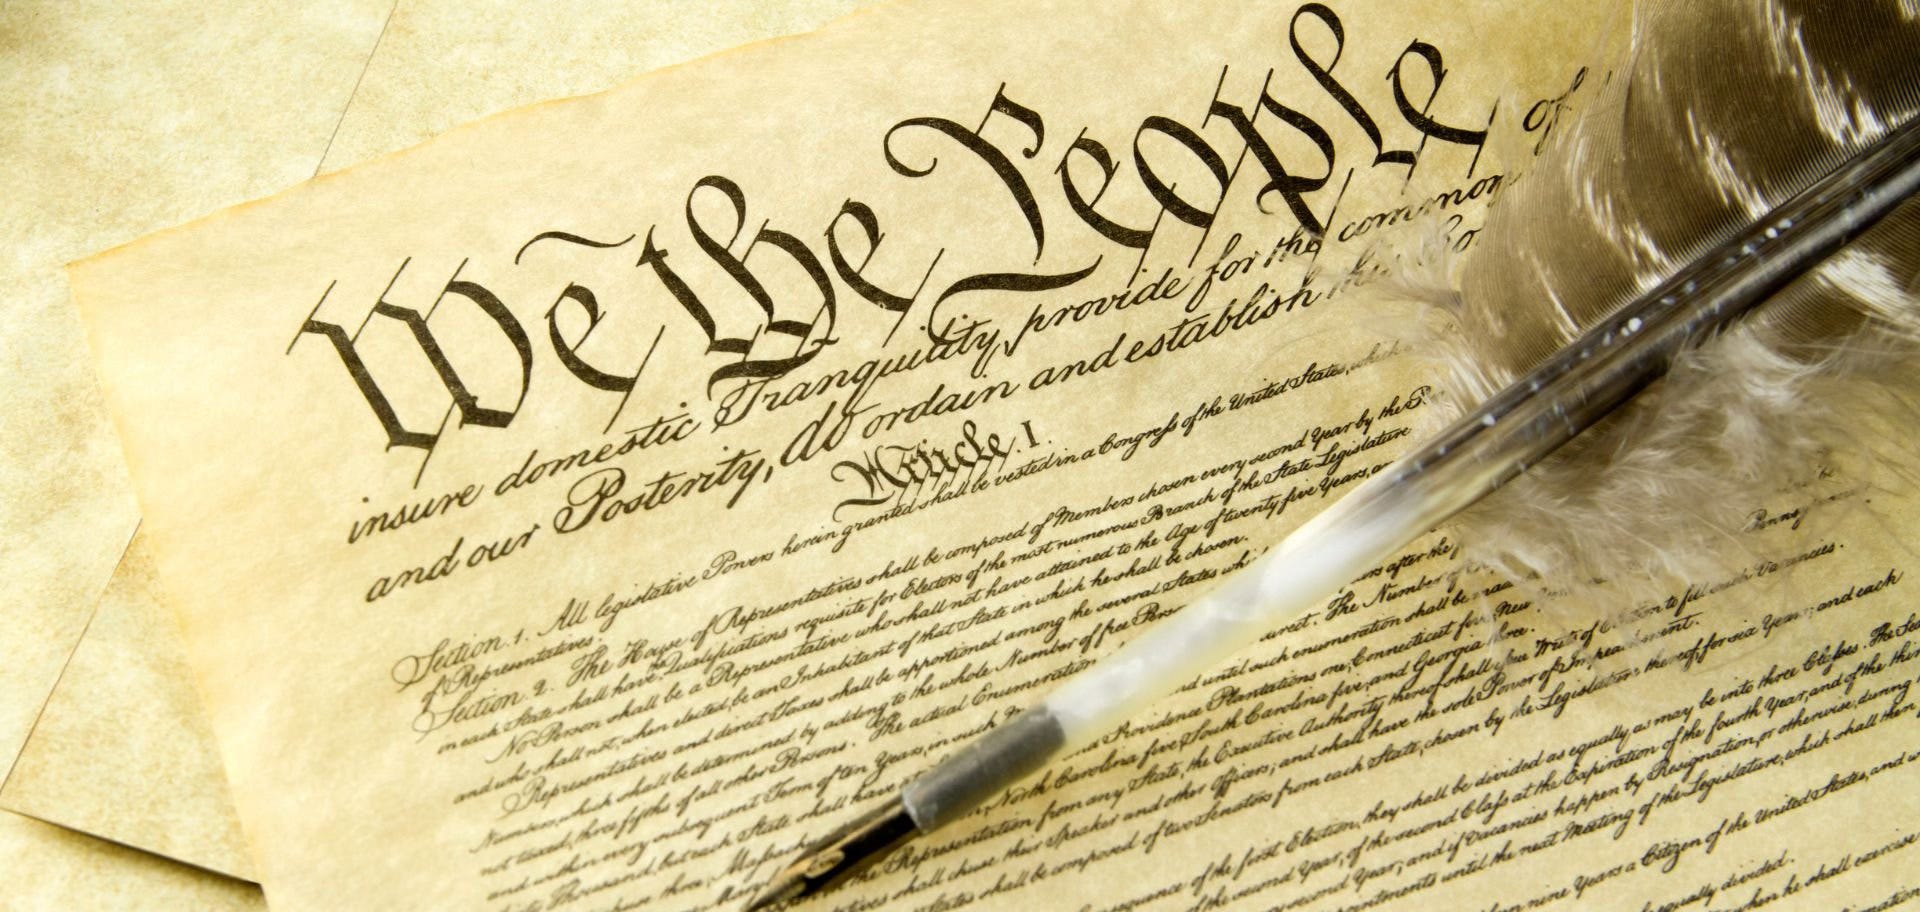 We the People of
insure domestic Tranquility, provide for the common
and our Posterity, do ordain and establish this Co
Article. I.
Section. 1. All legislative Powers herein granted shall be vested in a Congress of the United States, which
of Representatives.
Section. 2. The House of Representatives shall be composed of Members chosen every second Year by the P
in each State shall have the Qualifications requisite for Electors of the most numerous Branch of the State Legislature
No Person shall be a Representative who shall not have attained to the Age of twenty five Years, an
and who shall not, when elected, be an Inhabitant of that State in which he shall be chosen.
Representatives and direct Taxes shall be apportioned among the several States whi
Numbers, which shall be determined by adding to the whole Number of free Perso
not taxed, three fifths of all other Persons. The actual Enumeration
and within every subsequent Term of ten Years, in such
Thousand, but each State shall have at
three, Massachu
after the
The Number of
and until such enumeration shall be
Providence Plantations one, Connecticut five, New
North Carolina five, South Carolina five, and Georgia three.
Representation from any State, the Executive Authority thereof shall Writs of to fill such Vacancies.
shall chuse their Speaker and other Officers; and shall have the sole Power of Impeachment.
shall be composed of two Senators from each State, chosen by the Legislature thereof, for six Years; and each
of the first Election, they shall be divided as equally as may be into three Classes. The Sea
of the second Year, of the second Class at the Expiration of the fourth Year, and of the thir
second Year; and if Vacancies happen by Resignation, or otherwise, during
until the next Meeting of the Legislature, which shall then
nine Years a Citizen of the United States, and w
equally divided.
when he shall exercise